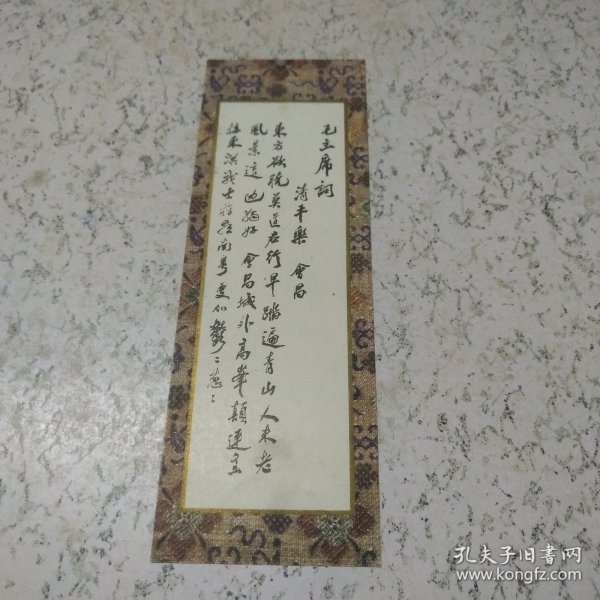 毛主席詞
清平樂 會昌
東方欲曉莫道君行早踏遍青山人未老
風景這邊獨好 會昌城外高峯顛連直
接東溟戰士指看南粵更加鬱〻葱〻
孔夫子旧书网
www.kongfz.com